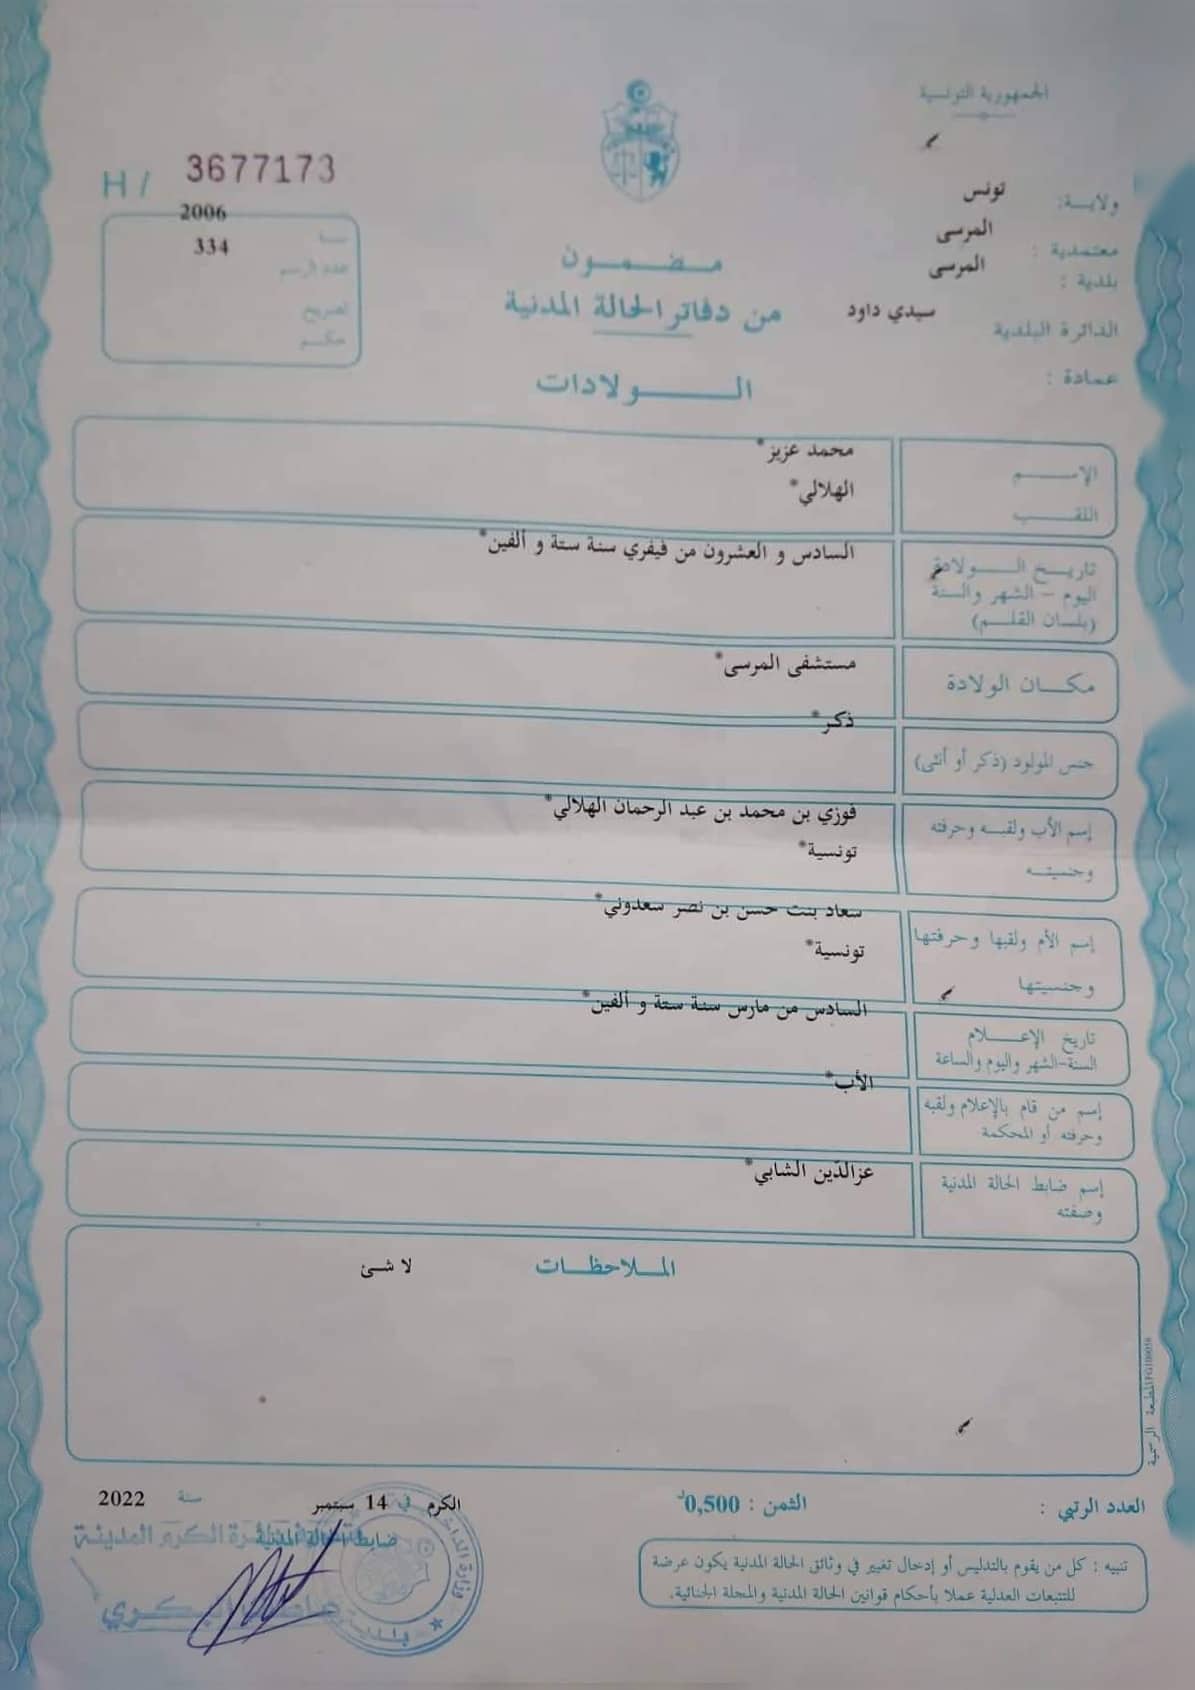 الجمهورية التونسية
H / 3677173
ولايـة: تونس
معتمدية : المرسى
بلدية : المرسى
الدائرة البلدية سيدي داود
عمادة :
سنة 2006
عدد الرسم 334
لصريح
حكم
مـضـمـون
من دفاتر الحالة المدنية
الـولادات
الإسـم محمد عزيز*
اللقـب الهلالي*
تاريـخ الـولادة السادس و العشرون من فيفري سنة ستة و ألفين*
اليوم - الشهر والسنة
(بلسان القلـم)
مكـان الولادة مستشفى المرسى*
جنس المولود (ذكر أو أنثى) ذكر*
إسم الأب ولقبـه وحرفته فوزي بن محمد بن عبد الرحمان الهلالي*
وجنسيتـه تونسية*
إسم الأم ولقبها وحرفتها سعاد بنت حسن بن نصر سعدوني*
وجنسيتها تونسية*
تاريخ الإعـلام السادس من مارس سنة ستة و ألفين*
السنة-الشهر واليوم والساعة
إسم من قام بالإعلام ولقبه الأب*
وحرفته أو المحكمة
إسم ضابط الحالة المدنية عزالدّين الشابي*
وصفته
المـلاحظـات
لا شئ
العدد الرتبي :
الثمن : 0,500د
الكرم في 14 سبتمبر سنة 2022
ضابط الحالة المدنية
تنبيه : كل من يقوم بالتدليس أو إدخال تغيير في وثائق الحالة المدنية يكون عرضة
للتتبعات العدلية عملا بأحكام قوانين الحالة المدنية والمجلة الجنائية.